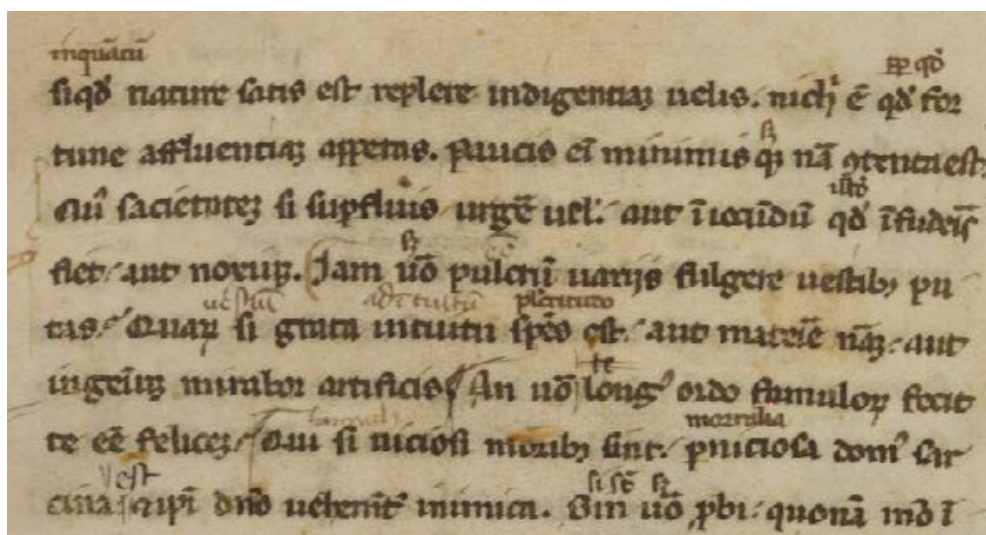 inquātū
siqđ nature satis est replere indigentiaꝫ uelis. nichˡ ē qđ for
tune affluentiaꝫ appetas. paucis eī minimisqꝫ nā ꝯtenta est.
Cuiꝰ sacietateꝫ si suꝑfluis urgē uelˢ. aut īiocūdū qđ īfuderis
fiet. aut noxiuꝫ. Jam uō pulcrū uariis fulgere uestibꝫ pu
tas. Quaꝝ si grata intuitu spēs est. aut materīe nāꝫ. aut
ingeniuꝫ mirabor artificis. An uō longꝰ ordo famuloꝝ facit
te eē feliceꝫ. Qui si uiciosi moribꝫ sint. ꝑniciosa domꝰ sar
cina ⁊ ipī dño uehemēt inimica. Sin uō ꝓbi. quonā mō ī